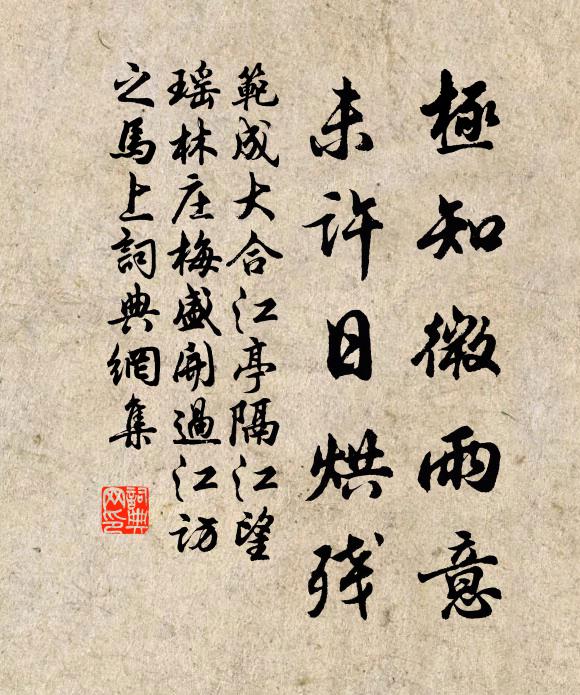 極知微雨意
未許日烘残
範成大合江亭隔江望
瑶林庄梅盛開過江訪
之馬上詞典網集
詞典网印